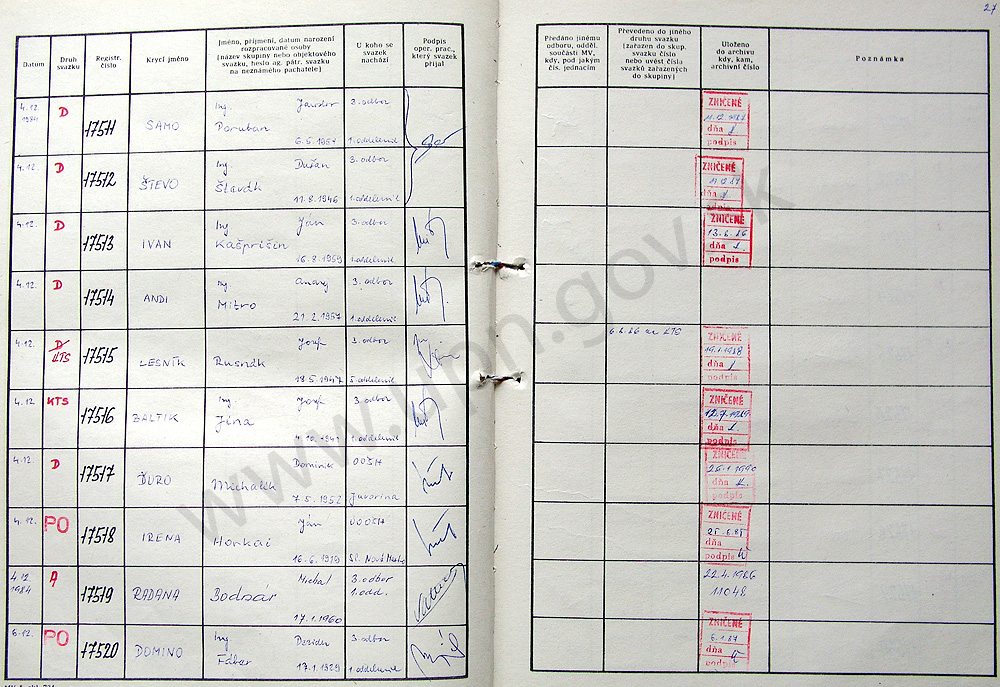 27
Datum
Druh svazku
Registr. číslo
Krycí jméno
Jméno, příjmení, datum narození
rozpracované osoby
(název skupiny nebo objektového
svazku, heslo ag. pátr. svazku
na neznámého pachatele)
U koho se
svazek
nachází
Podpis
oper. prac.,
který svazek
přijal
Předáno jinému
odboru, odděl.
součásti MV,
kdy, pod jakým
čís. jednacím
Převedeno do jiného
druhu svazku
(zařazen do skup.
svazku číslo
nebo uvést čísla
svazků zařazených
do skupiny)
Uloženo
do archivu
kdy, kam,
archivní číslo
Poznámka
4.12. 1984 D 17511 SAMO Ing. Poruban 3. odbor 1. oddelenie
ZNIČENÉ
dňa
podpis
4.12. D 17512 ŠTEVO Ing Dušan Slavík 11.8.1946 3. odbor 1. oddelenie
ZNIČENÉ
dňa
4.12. D 17513 IVAN Ing Ján Kašprišin 16.8.1959 3. odbor 1. oddelenie
ZNIČENÉ
13.6.86
dňa
podpis
4.12. D 17514 ANDI Ing Mitro 21.2.1957 3. odbor 1. oddelenie
4.12. D KTS 17515 LESNÍK Jozef Rusnák 18.5.1947 3. odbor 5. oddelenie
ZNIČENÉ
19.1.1988
dňa
podpis
4.12 KTS 17516 BALTIK Ing. Jozef Jina 4.10.1941 3. odbor 1. oddelenie
ZNIČENÉ
12.7.1989
dňa
podpis
4.12. D 17517 ĎURO Dominik Michalik 7.5.1952 OOŠH Javorina
ZNIČENÉ
25.1.1990
dňa
podpis
4.12. PO 17518 IRENA Ján Horkai 16.6.1919
ZNIČENÉ
dňa
podpis
4.12 1984 A 17519 RADANA Michal Bodnár 17.1.1960 3. odbor 1. odd.
22.4.1986
11048
6.12. PO 17520 DOMINO Ing Dezider Fáber 17.1.1929 3. odbor 1. oddelenie
ZNIČENÉ
6.1.87
dňa
podpis
www.upn.gov.sk